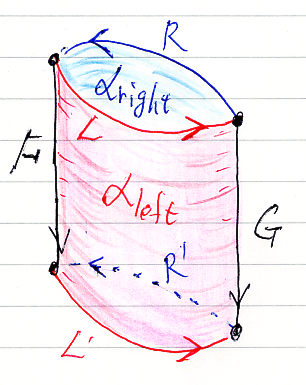 R
αright
L
H
αleft
G
R'
L'